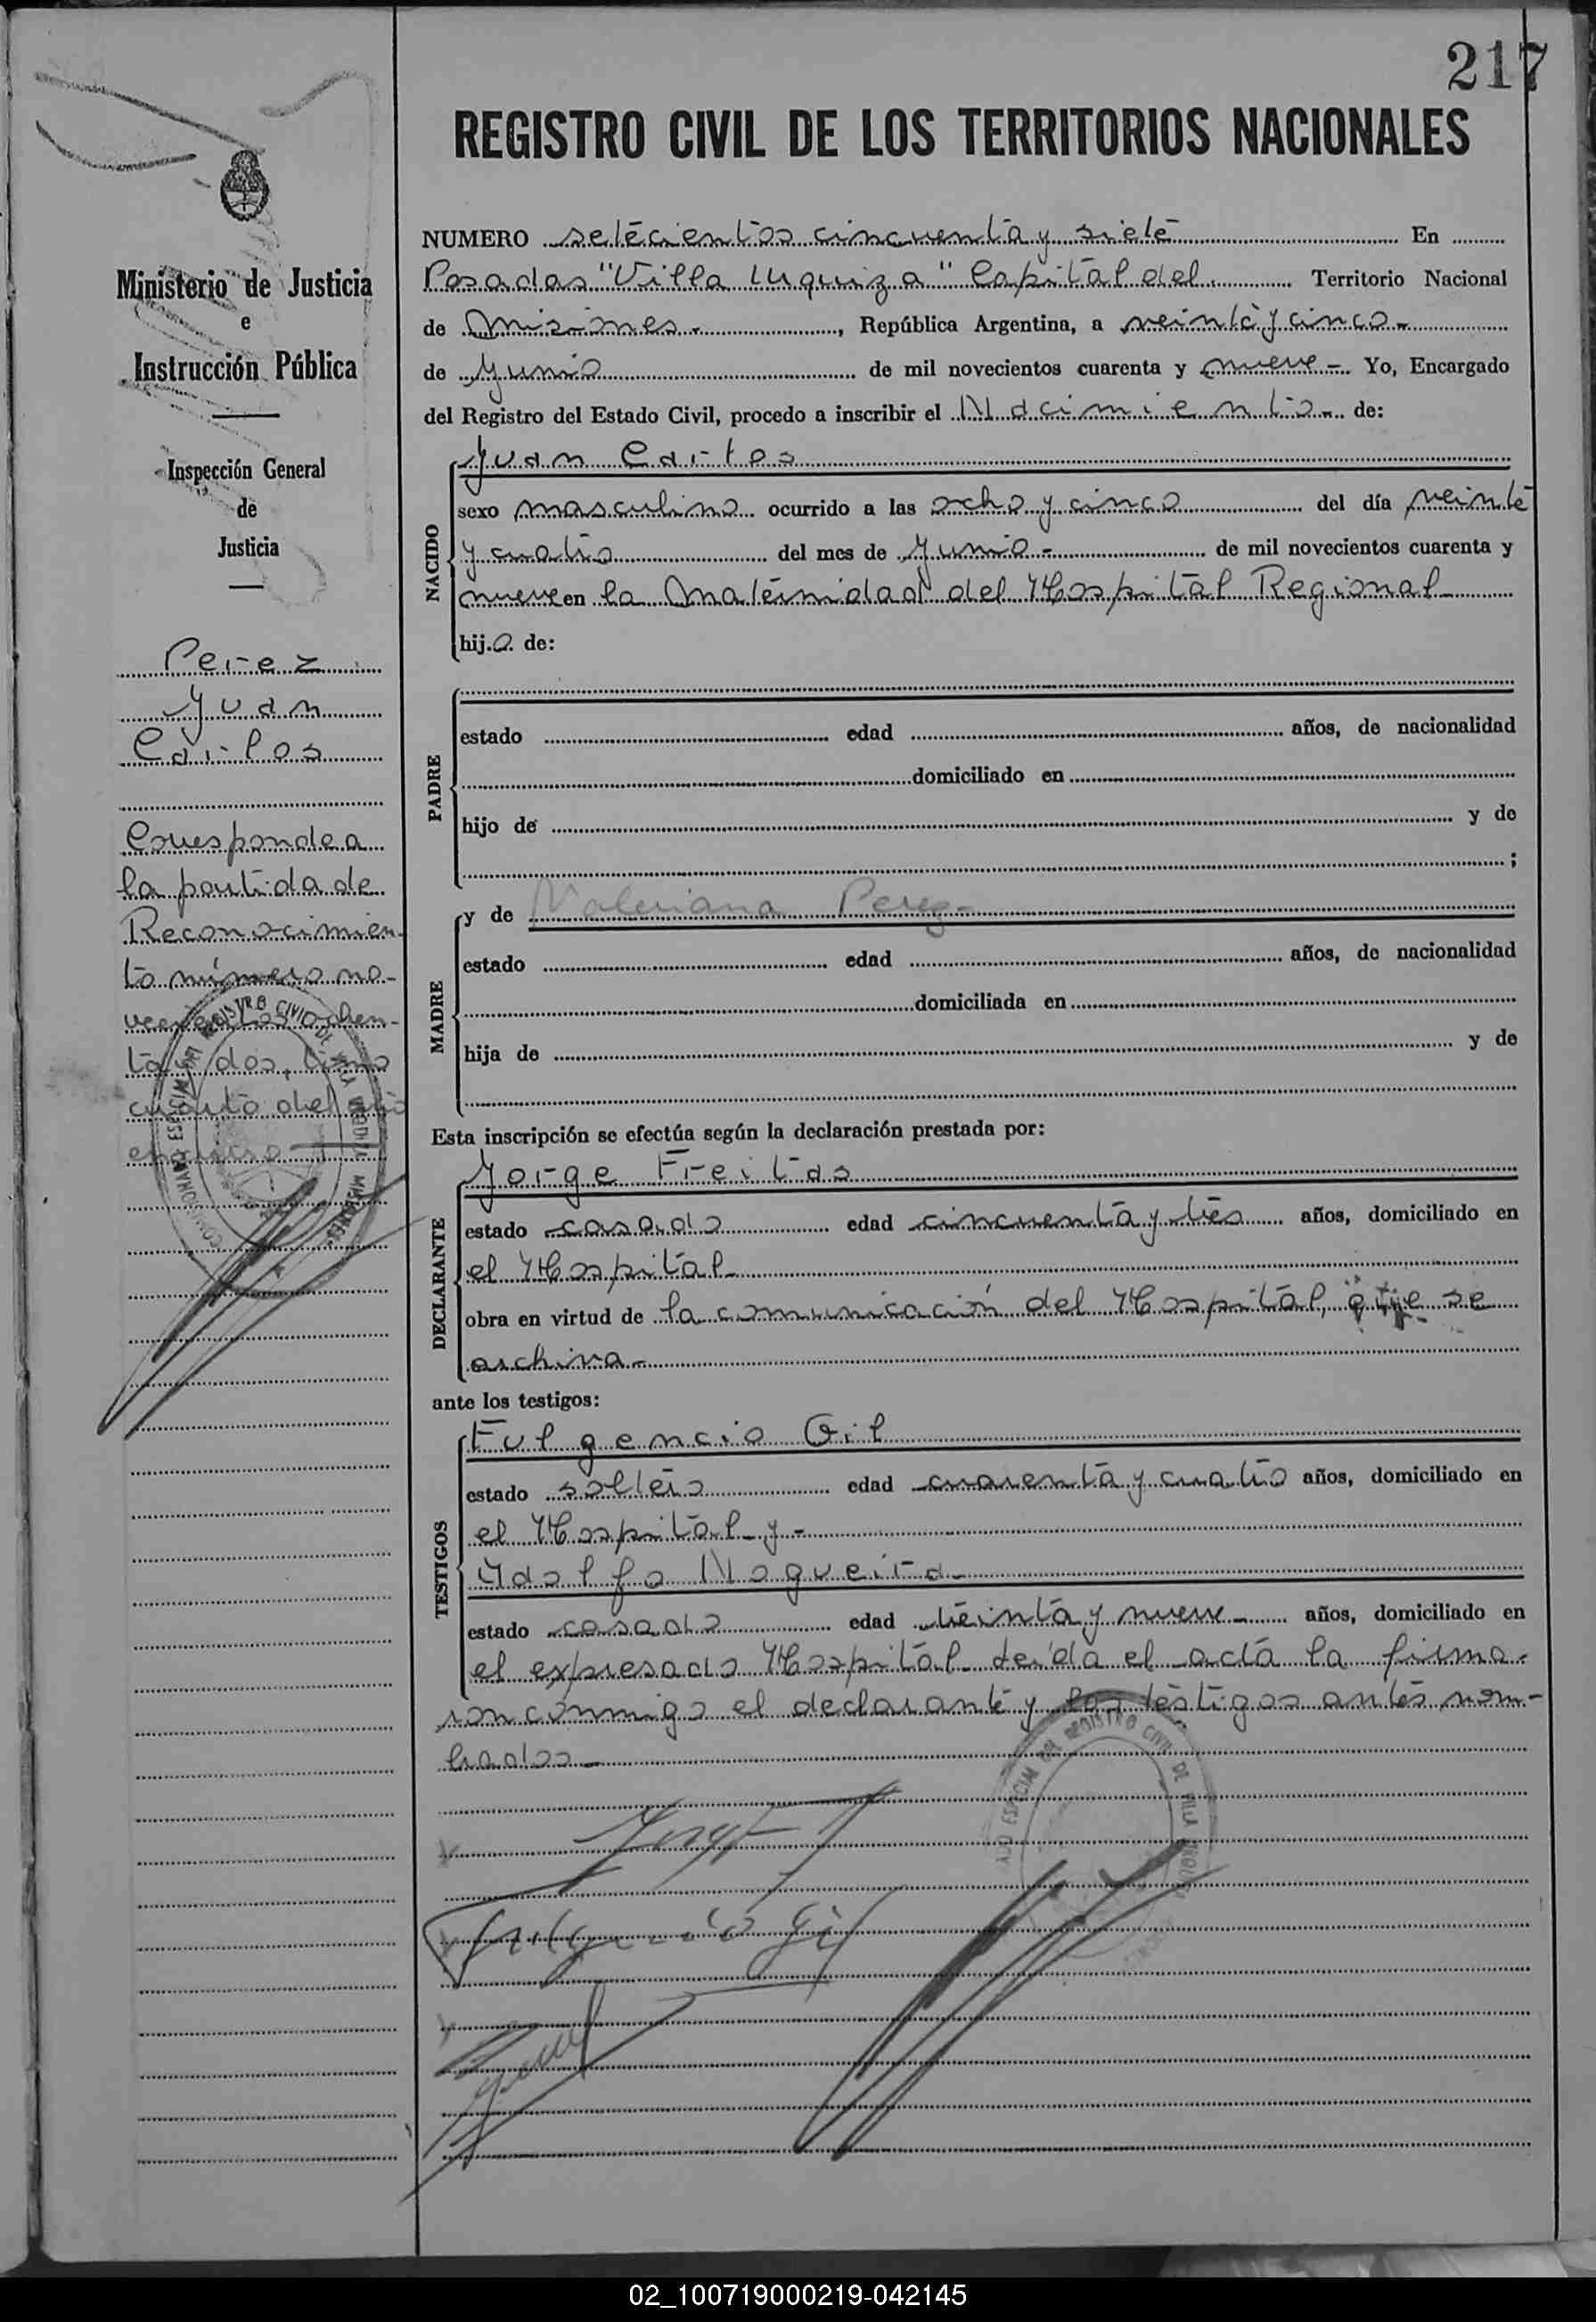 217
REGISTRO CIVIL DE LOS TERRITORIOS NACIONALES
Ministerio de Justicia
e
Instrucción Pública
Inspección General
de
Justicia
Perez
Juan
Carlos
Corresponde a
la partida de
Reconocimien-
to número no-
vecientos ochen-
ta y dos, tomo
cuarto del año
NUMERO setecientos cincuenta y siete En
Posadas "Villa Urquiza" Capital del Territorio Nacional
de Misiones.-, República Argentina, a veinte y cinco-
de Junio de mil novecientos cuarenta y nueve-. Yo, Encargado
del Registro del Estado Civil, procedo a inscribir el Nacimiento-. de:
NACIDO
Juan Carlos
sexo masculino ocurrido a las ocho y cinco del día veinte
y cuatro del mes de Junio- de mil novecientos cuarenta y
nueve en la Maternidad del Hospital Regional
hijo de:
PADRE
estado edad años, de nacionalidad
domiciliado en
hijo de y de
;
MADRE
y de Valeriana Perez-
estado edad años, de nacionalidad
domiciliada en
hija de y de
Esta inscripción se efectúa según la declaración prestada por:
DECLARANTE
Jorge Freitas
estado casado edad cincuenta y tres años, domiciliado en
el Hospital
obra en virtud de la comunicación del Hospital, que se
archiva-
ante los testigos:
TESTIGOS
Fulgencio Gil
estado soltero edad cuarenta y cuatro años, domiciliado en
el Hospital y-
Adolfo Nogueira
estado casado edad treinta y nueve- años, domiciliado en
el expresado Hospital leída el acta la firma-
ron conmigo el declarante y los testigos antes nom-
brados-
Fulgencio Gil
REGISTRO CIVIL DE VILLA URQUIZA MISIONES
ESPECIAL DEL REGISTRO CIVIL DE VILLA
02_100719000219-042145